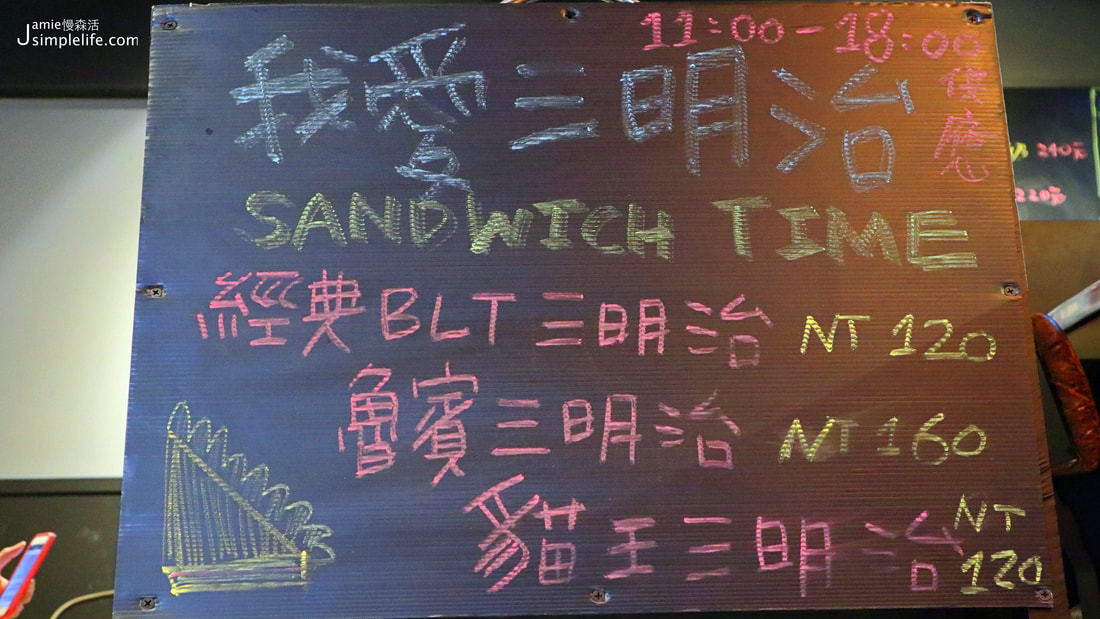 Jamie慢森活
Jsimplelife.com
11:00-18:00
供應
我愛三明治
SANDWICH TIME
240元
220元
經典BLT三明治 NT 120
魯賓三明治 NT 160
貓王三明治 NT 120